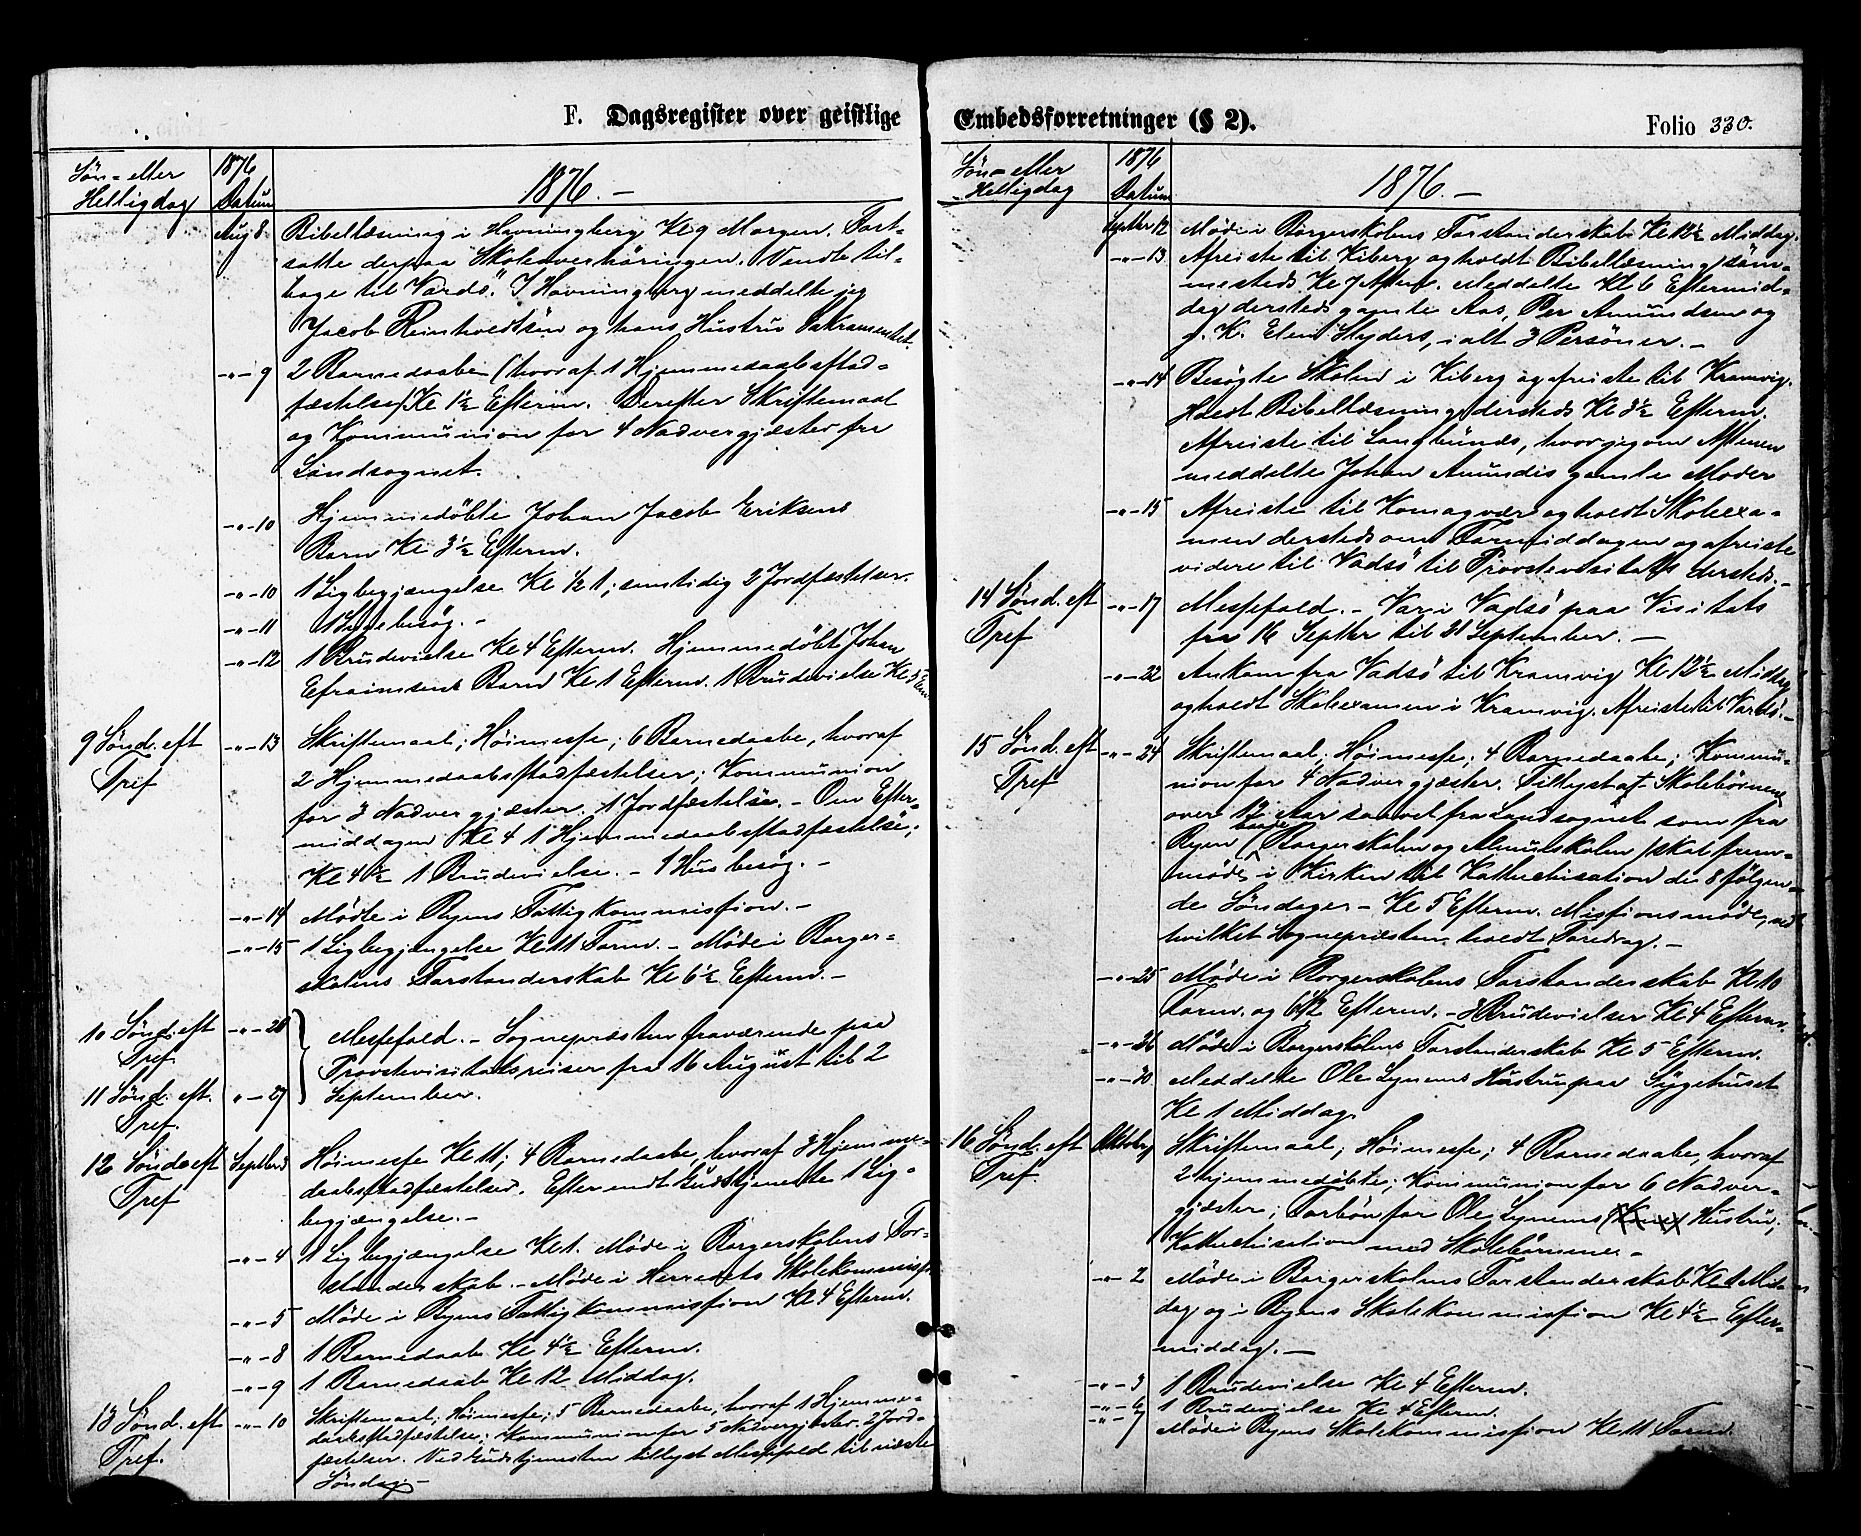 F. Dagsregister over geistlige
Søn- eller
Helligdag
1876
Datum
1876. -
Aug 8. Bibellæsning i Havningberg Kl 9 Morgen. Fort-
satte derpaa Skoleoverhøringen. Vendte til-
bage til Vardö. I Havningberg meddelte jeg
Jacob Reinholdtsen og hans Hustru Sakramentet.
-"- 9 2 Barnedaabe (hvoraf 1 Hjemmedaabsstad-
fæstelse) Kl 1½ Efterm. Derefter Skriftemaal
og Kommunion for 4 Nadvergjæster fra
Landsognet.
-"- 10 Hjemmedöbte Johan Jacob Eriksens
Barn Kl 3½ Efterm.
-"- 10 1 Ligbegjængelse Kl ½ 1; samtidig 2 Jordfæstelser.
-"- 11 1 Sygebesög. -
-"- 12 1 Brudevielse Kl 4 Efterm. Hjemmedöbte Johan
Efraimsens Barn Kl 1 Efterm. 1 Brudevielse Kl 5 Em
9 Sönd. eft -"- 13 Skriftemaal; Höimesse; 6 Barnedaabe, hvoraf
Tref 2 Hjemmedaabsstadfæstelser; Kommunion
for 3 Nadvergjæster. 1 Jordfæstelse. - Om Efter-
middagen Kl 4 1 Hjemmedaabsstadfæstelse;
Kl 4½ 1 Brudevielse. - 1 Husbesög. -
-"- 14 Möde i Byens Fattigkommission. -
-"- 15 1 Ligbegjængelse Kl 11 Form. - Möde i Borger-
skolens Forstanderskab Kl 6½ Efterm. -
10 Sönd. eft -"- 20 Messefald. - Sognepræsten fraværende paa
Tref. Provstevisitatsreiser fra 16 August til 2
11 Sönd. eft. -"- 27 September.
Tref.
12 Sönd. eft Septbr 3 Höimesse Kl 11; 4 Barnedaabe, hvoraf 3 Hjemme-
Tref daabsstadfæstelser. Efter endt Gudstjeneste 1 Lig-
begjængelse. -
-"- 4 1 Ligbegjængelse Kl 1. Möde i Borgerskolens For-
standerskab. - Möde i Herredets Skolekommiss
-"- 5 Möde i Byens Fattigkommission Kl 4 Efterm.
-"- 8 1 Barnedaab Kl 4½ Efterm.
-"- 9 1 Barnedaab Kl 12 Middag.
13 Sönd. eft -"- 10 Skriftemaal; Höimesse; 5 Barnedaabe, hvoraf 1 Hjemme-
Tref. daabsstadfæstelse; Kommunion for 5 Nadvergjæster. 2 Jord-
fæstelser. Ved Gudstjenesten tillyst Messefald til næste
Söndag. -
Embedsforretninger (§ 2).
Folio 330.
Søn- eller
Helligdag
1876
Datum
1876. -
Septbr 12 Möde i Borgerskolens Forstanderskab Kl 12½ Middag.
-"- 13 Afreiste til Kiberg og holdt Bibellæsning sam-
mesteds Kl 7 Aften. Meddelte Kl 6 Eftermid-
dag dersteds gamle Aas, Per Amundsen og
g. K. Elen Slyders, ialt 3 Personer. -
-"- 14 Besögte Skolen i Kiberg og afreiste til Kramvig.
Holdt Bibellæsning dersteds Kl 3½ Efterm.
Afreiste til Langbunes, hvor jeg om Aftenen
meddelte Johan Amundis gamle Moder
-"- 15 Afreiste til Komagvær og holdt Skoleexa-
men dersteds om Formiddagen og afreiste
videre til Vadsö til Provstevisitats dersteds. -
14 Sönd. eft -"- 17 Messefald. - Var i Vadsö paa Visitats
Tref fra 16 Septbr til 21 September. -
-"- 22 Ankom fra Vadsö til Kramvig Kl 12½ Middag
og holdt Skoleexamen i Kramvig. Afreiste til Vardö. -
15 Sönd. eft -"- 24 Skriftemaal; Höimesse; 4 Barnedaabe; Kommu-
Tref nion for 4 Nadvergjæster. Tillyst at Skolebörnene
over 12 Aar saavel fra Landsognet som fra
Byen (baade Borgerskolen og Almueskolen) skal frem-
möde i Kirken til Kathechisation de 8 følgen-
de Söndager - Kl 5 Efterm. Missionsmöde, ved
hvilket Sognepræsten holdt Foredrag. -
-"- 25 Möde i Borgerskolens Forstanderskab Kl 10
Form. og 6½ Efterm. - 2 Brudevielser Kl 4 Efterm.
-"- 26 Möde i Borgerskolens Forstanderskab Kl 5 Efterm.
-"- 30 Meddelte Ole Lynems Hustru paa Sygehuset
Kl 1 Middag.
16 Sönd. eft Oktobr 1 Skriftemaal; Höimesse; 4 Barnedaabe, hvoraf
Tref. 2 hjemmedöbte; Kommunion for 6 Nadver-
gjæster; Forbön for Ole Lynems Hustru;
Kathechisation med Skolebörnene. -
-"- 2 Möde i Borgerskolens Forstanderskab Kl 1 Mid-
dag og i Byens Skolekommission Kl 4½ Efter-
middag. -
-"- 3 1 Brudevielse Kl 4 Efterm.
-"- 6 1 Brudevielse Kl 4 Efterm.
-"- 7 Möde i Byens Skolekommission Kl 11 Form.